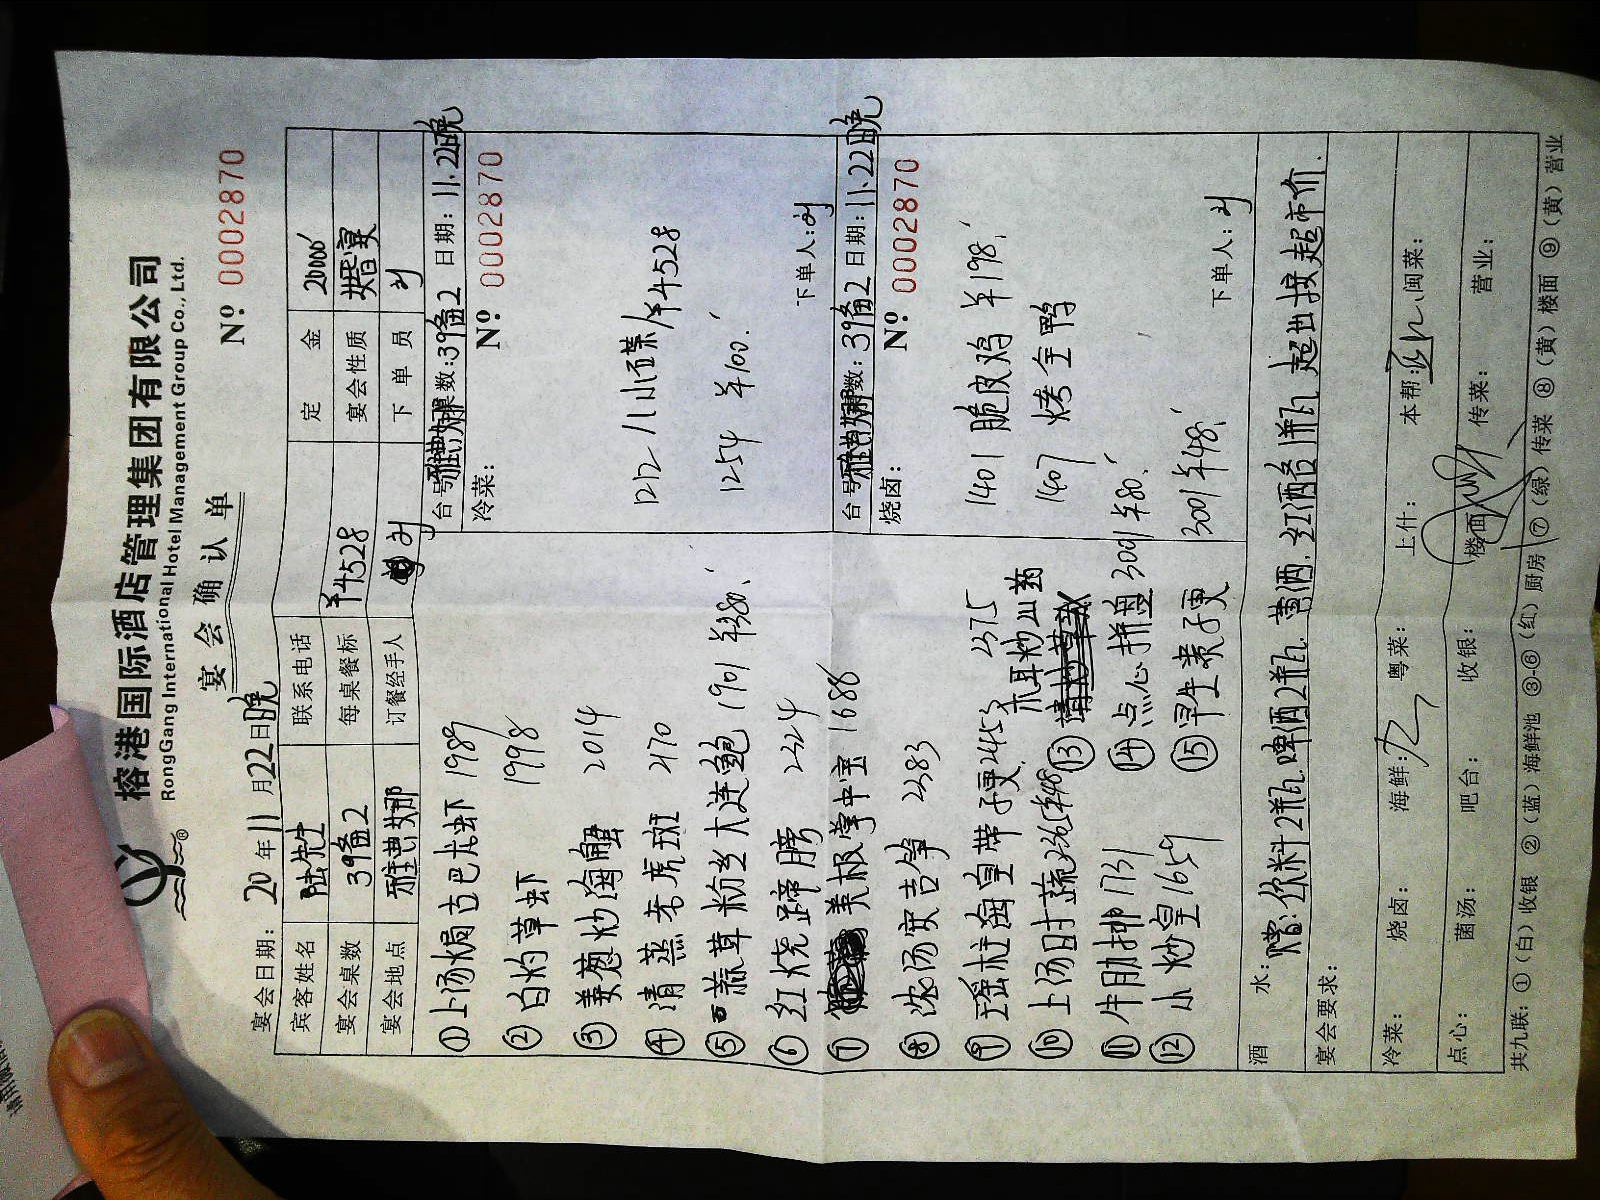 榕港国际酒店管理集团有限公司
RongGang International Hotel Management Group Co., Ltd.
宴会确认单
Nº 0002870
宴会日期: 20 年 11 月 22 日晚
宾客姓名 陆先生 联系电话 定金 20000
宴会桌数 39备2 每桌餐标 ¥4528 宴会性质 婚宴
宴会地点 雅典娜 订餐经手人 刘 下单员 刘
① 上汤焗古巴龙虾 1989
② 白灼草虾 1998
③ 姜葱炒海蟹 2014
④ 清蒸老虎斑 470
⑤ 蒜茸粉丝大连鲍 1901 ¥380
⑥ 红烧蹄膀 2324
⑦ 美极掌中宝 1688
⑧ 浓汤安吉笋 2383
⑨ 瑶柱海皇带子更 2453
⑩ 上汤时蔬 ¥48
⑪ 牛肋排 1731
⑫ 小炒皇 1659
⑬ 木耳炒山药 2375
⑭ 点心拼盘 3001 ¥80
⑮ 早生贵子更 3001 ¥48
台号 雅典娜 桌数: 39备2 日期: 11.22晚
冷菜:
Nº 0002870
1212 八小碟 ¥4528
1254 ¥100
下单人: 刘
台号 雅典娜 桌数: 39备2 日期: 11.22晚
烧卤:
Nº 0002870
1401 脆皮鸡 ¥198
1407 烤全鸭
下单人: 刘
酒水: 饮料2瓶 啤酒2瓶. 黄酒. 红酒各1瓶 超出按超市价.
宴会要求:
冷菜: 烧卤: 海鲜: 粤菜: 上什: 本帮: 闽菜:
点心: 菌汤: 吧台: 收银: 楼面: 传菜: 营业:
共九联: ①(白)收银 ②(蓝)海鲜池 ③-⑥(红)厨房 ⑦(绿)传菜 ⑧(黄)楼面 ⑨(黄)营业